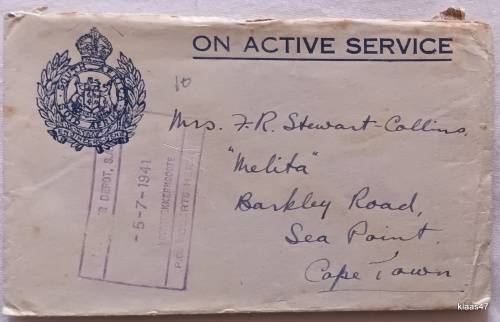 ON ACTIVE SERVICE
10
Mrs. F.R. Stewart-Collins,
"Melita"
Barkley Road,
Sea Point.
Cape Town
DEPOT, S.
-5-7-1941
klaas47